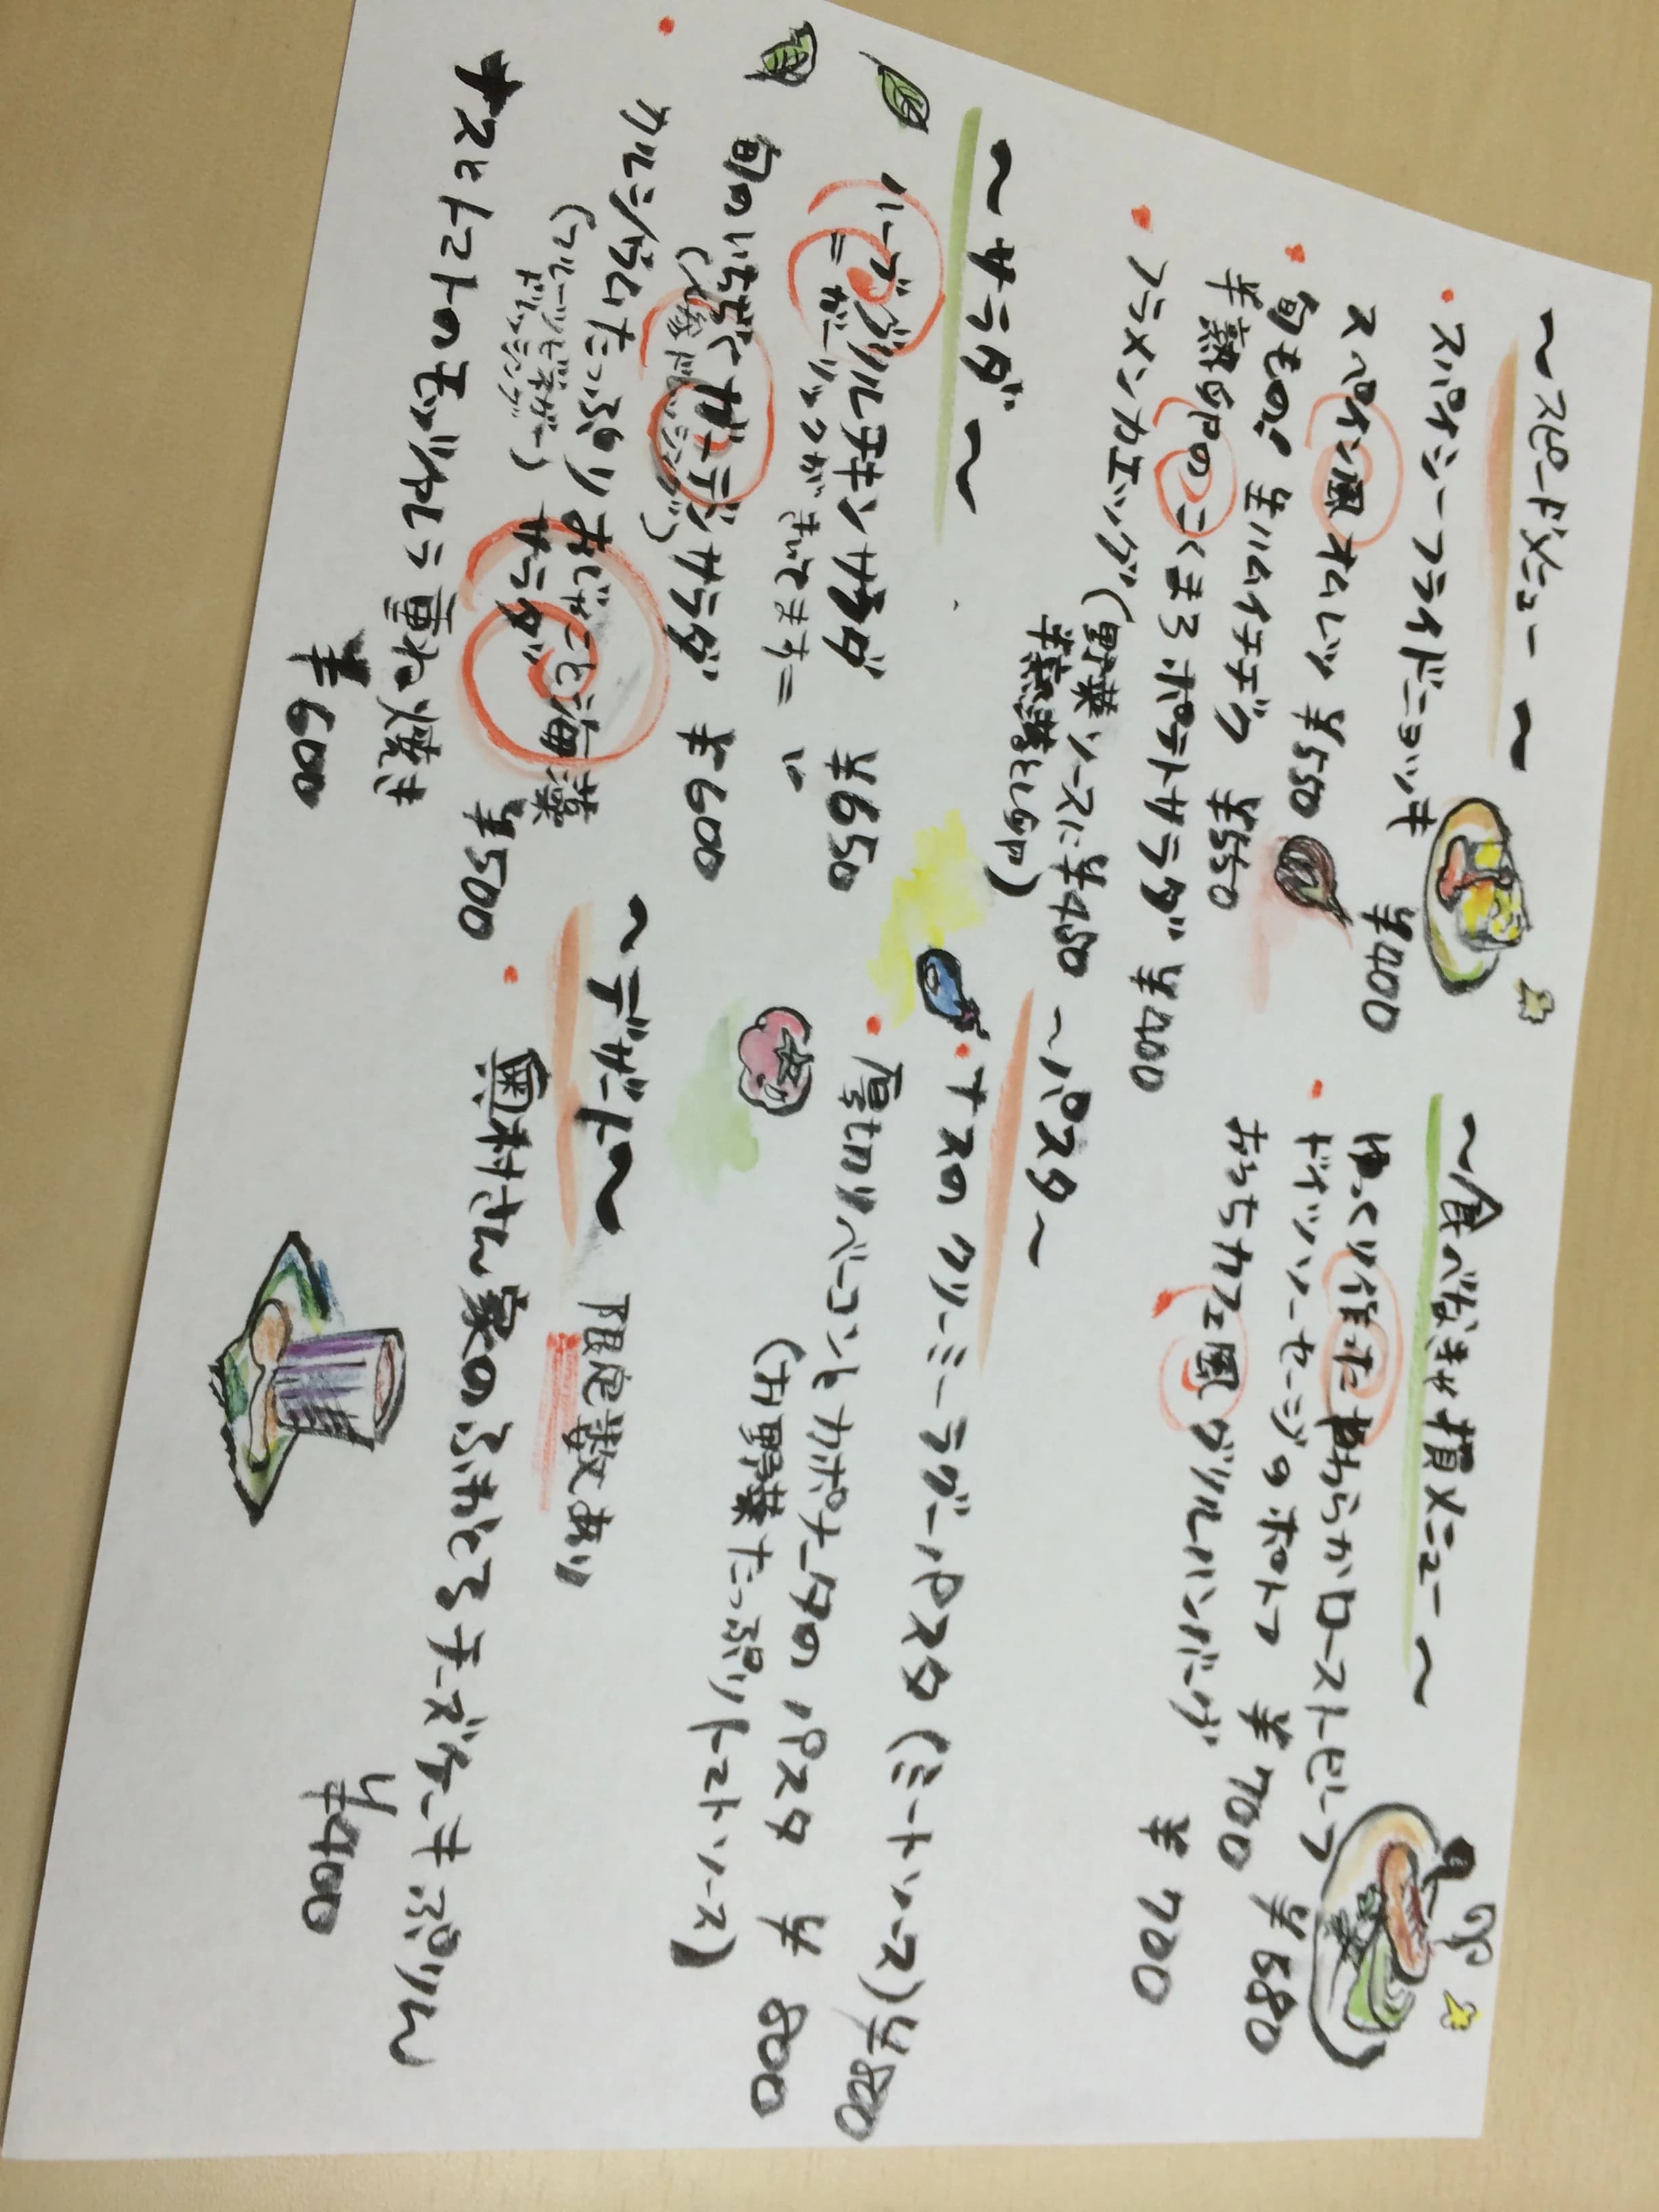 ～スピードメニュー～
スパイシーフライドニョッキ ¥400
スペイン風オムレツ ¥550
旬もの！生ハムイチヂク ¥550
半熟卵のこくまろポテトサラダ ¥400
フラメンカエッグ(野菜ソースに ¥450
半熟落とし卵)
～サラダ～
ハーブグリルチキンサラダ ¥650
＝ガーリックがきいてます＝
旬のいちぢくガーデンサラダ ¥600
ドレッシング)
カルシウムたっぷりおじゃこと海藻
(フルーツビネガー
ドレッシング) サラダ ¥500
ナスとトマトのモッツァレラ重ね焼き
¥600
～食べなきゃ損メニュー～
ゆっくり休ませた やわらかローストビーフ ¥680
ドイツソーセージのポトフ ¥700
おっちカフェ風グリルハンバーグ ¥700
～パスタ～
ナスのクリーミーラグーパスタ(ミートソース) ¥800
厚切りベーコンとカポナータのパスタ ¥800
(お野菜たっぷりトマトソース)
～デザート～ 限定数あり
奥村さん家のふわとろチーズケーキぷりん
¥400